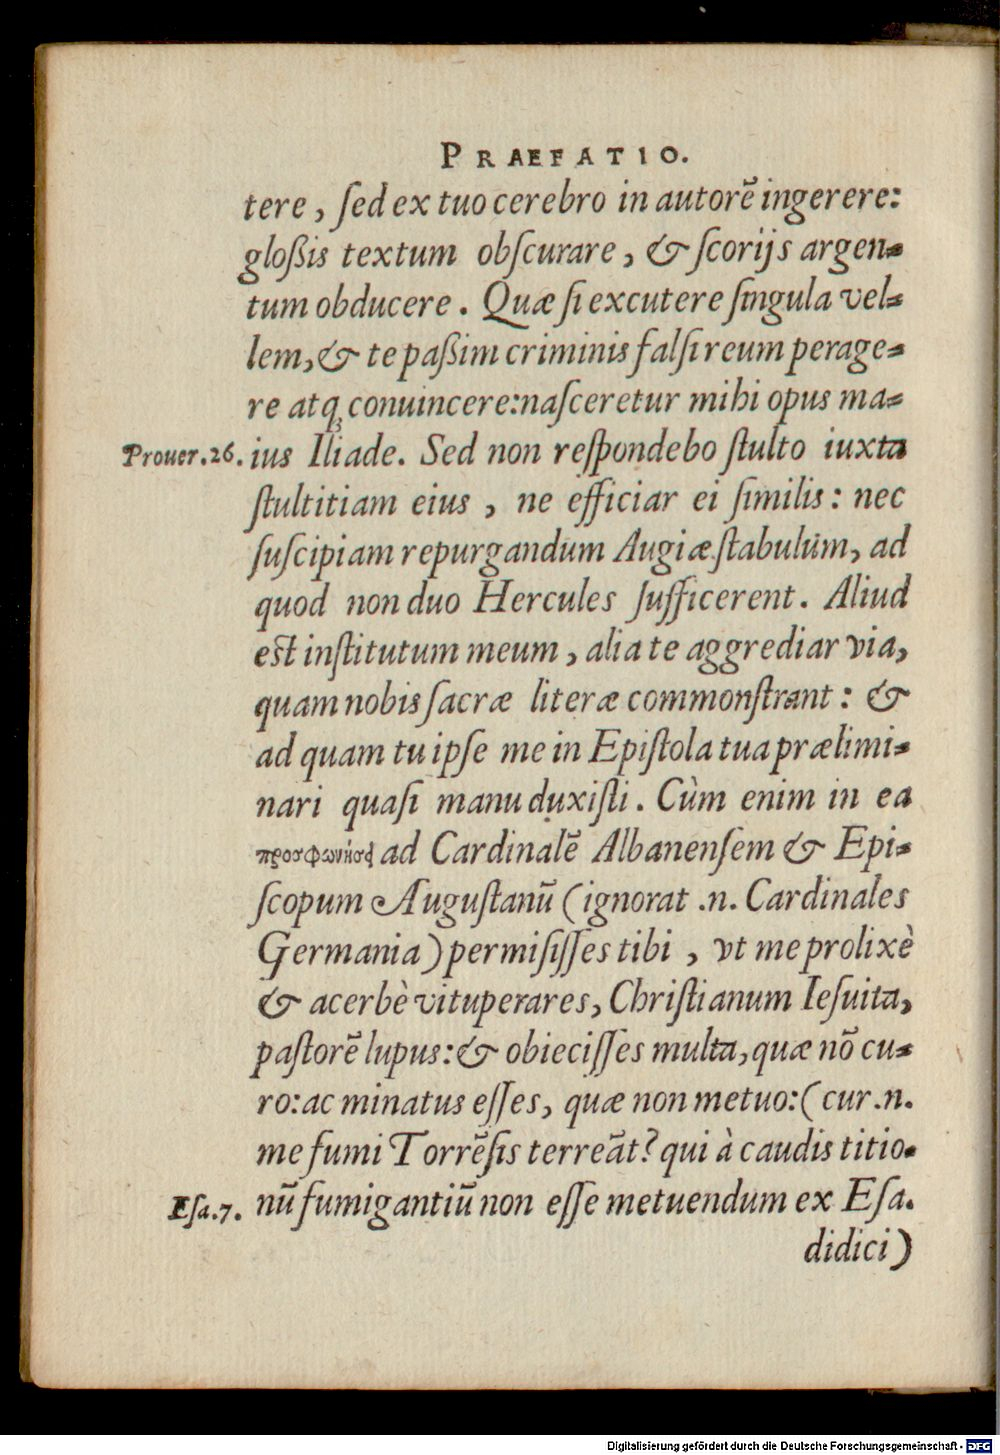 PRAEFATIO.
tere, ſed ex tuo cerebro in autorē ingerere:
gloßis textum obſcurare, & ſcorijs argen-
tum obducere. Quæ ſi excutere ſingula vel-
lem, & te paßim criminis falſi reum perage-
re atq́ꝫ conuincere: naſceretur mihi opus ma-
Prouer.26. ius Iliade. Sed non reſpondebo ſtulto iuxta
ſtultitiam eius, ne efficiar ei ſimilis: nec
ſuſcipiam repurgandum Augiæ ſtabulūm, ad
quod non duo Hercules ſufficerent. Aliud
est inſtitutum meum, alia te aggrediar via,
quam nobis ſacræ literæ commonſtrant: &
ad quam tu ipſe me in Epiſtola tua prælimi-
nari quaſi manu duxiſti. Cùm enim in ea
προσφωνήσζ ad Cardinalē Albanenſem & Epi-
ſcopum Auguſtanū (ignorat .n. Cardinales
Germania) permiſiſſes tibi, vt me prolixè
& acerbè vituperares, Chriſtianum Ieſuita,
paſtorē lupus: & obieciſſes multa, quæ nō cu-
ro: ac minatus eſſes, quæ non metuo: (cur .n.
me fumi Torrēſis terreāt? qui à caudis titio-
Eſa.7. nū fumigantiū non eſſe metuendum ex Eſa.
didici)
Digitalisierung gefördert durch die Deutsche Forschungsgemeinschaft - DFG